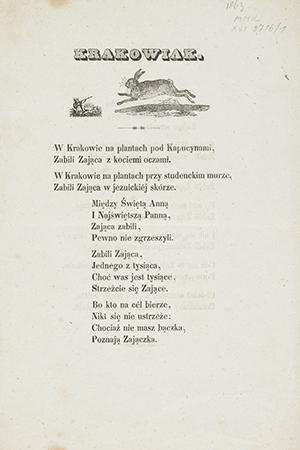 1863
KRAKOWIAK.
W Krakowie na plantach pod Kapucynami,
Zabili Zająca z kociemi oczami.
W Krakowie na plantach przy studenckim murze,
Zabili Zająca w jezuickiéj skórze.
Między Świętą Anną
I Najświętszą Panną,
Zająca zabili,
Pewno nie zgrzeszyli.
Zabili Zająca,
Jednego z tysiąca,
Choć was jest tysiące,
Strzeżcie się Zające.
Bo kto na cél bierze,
Nikt się nie ustrzeże;
Chociaż nie masz bączka,
Poznają Zajączka.